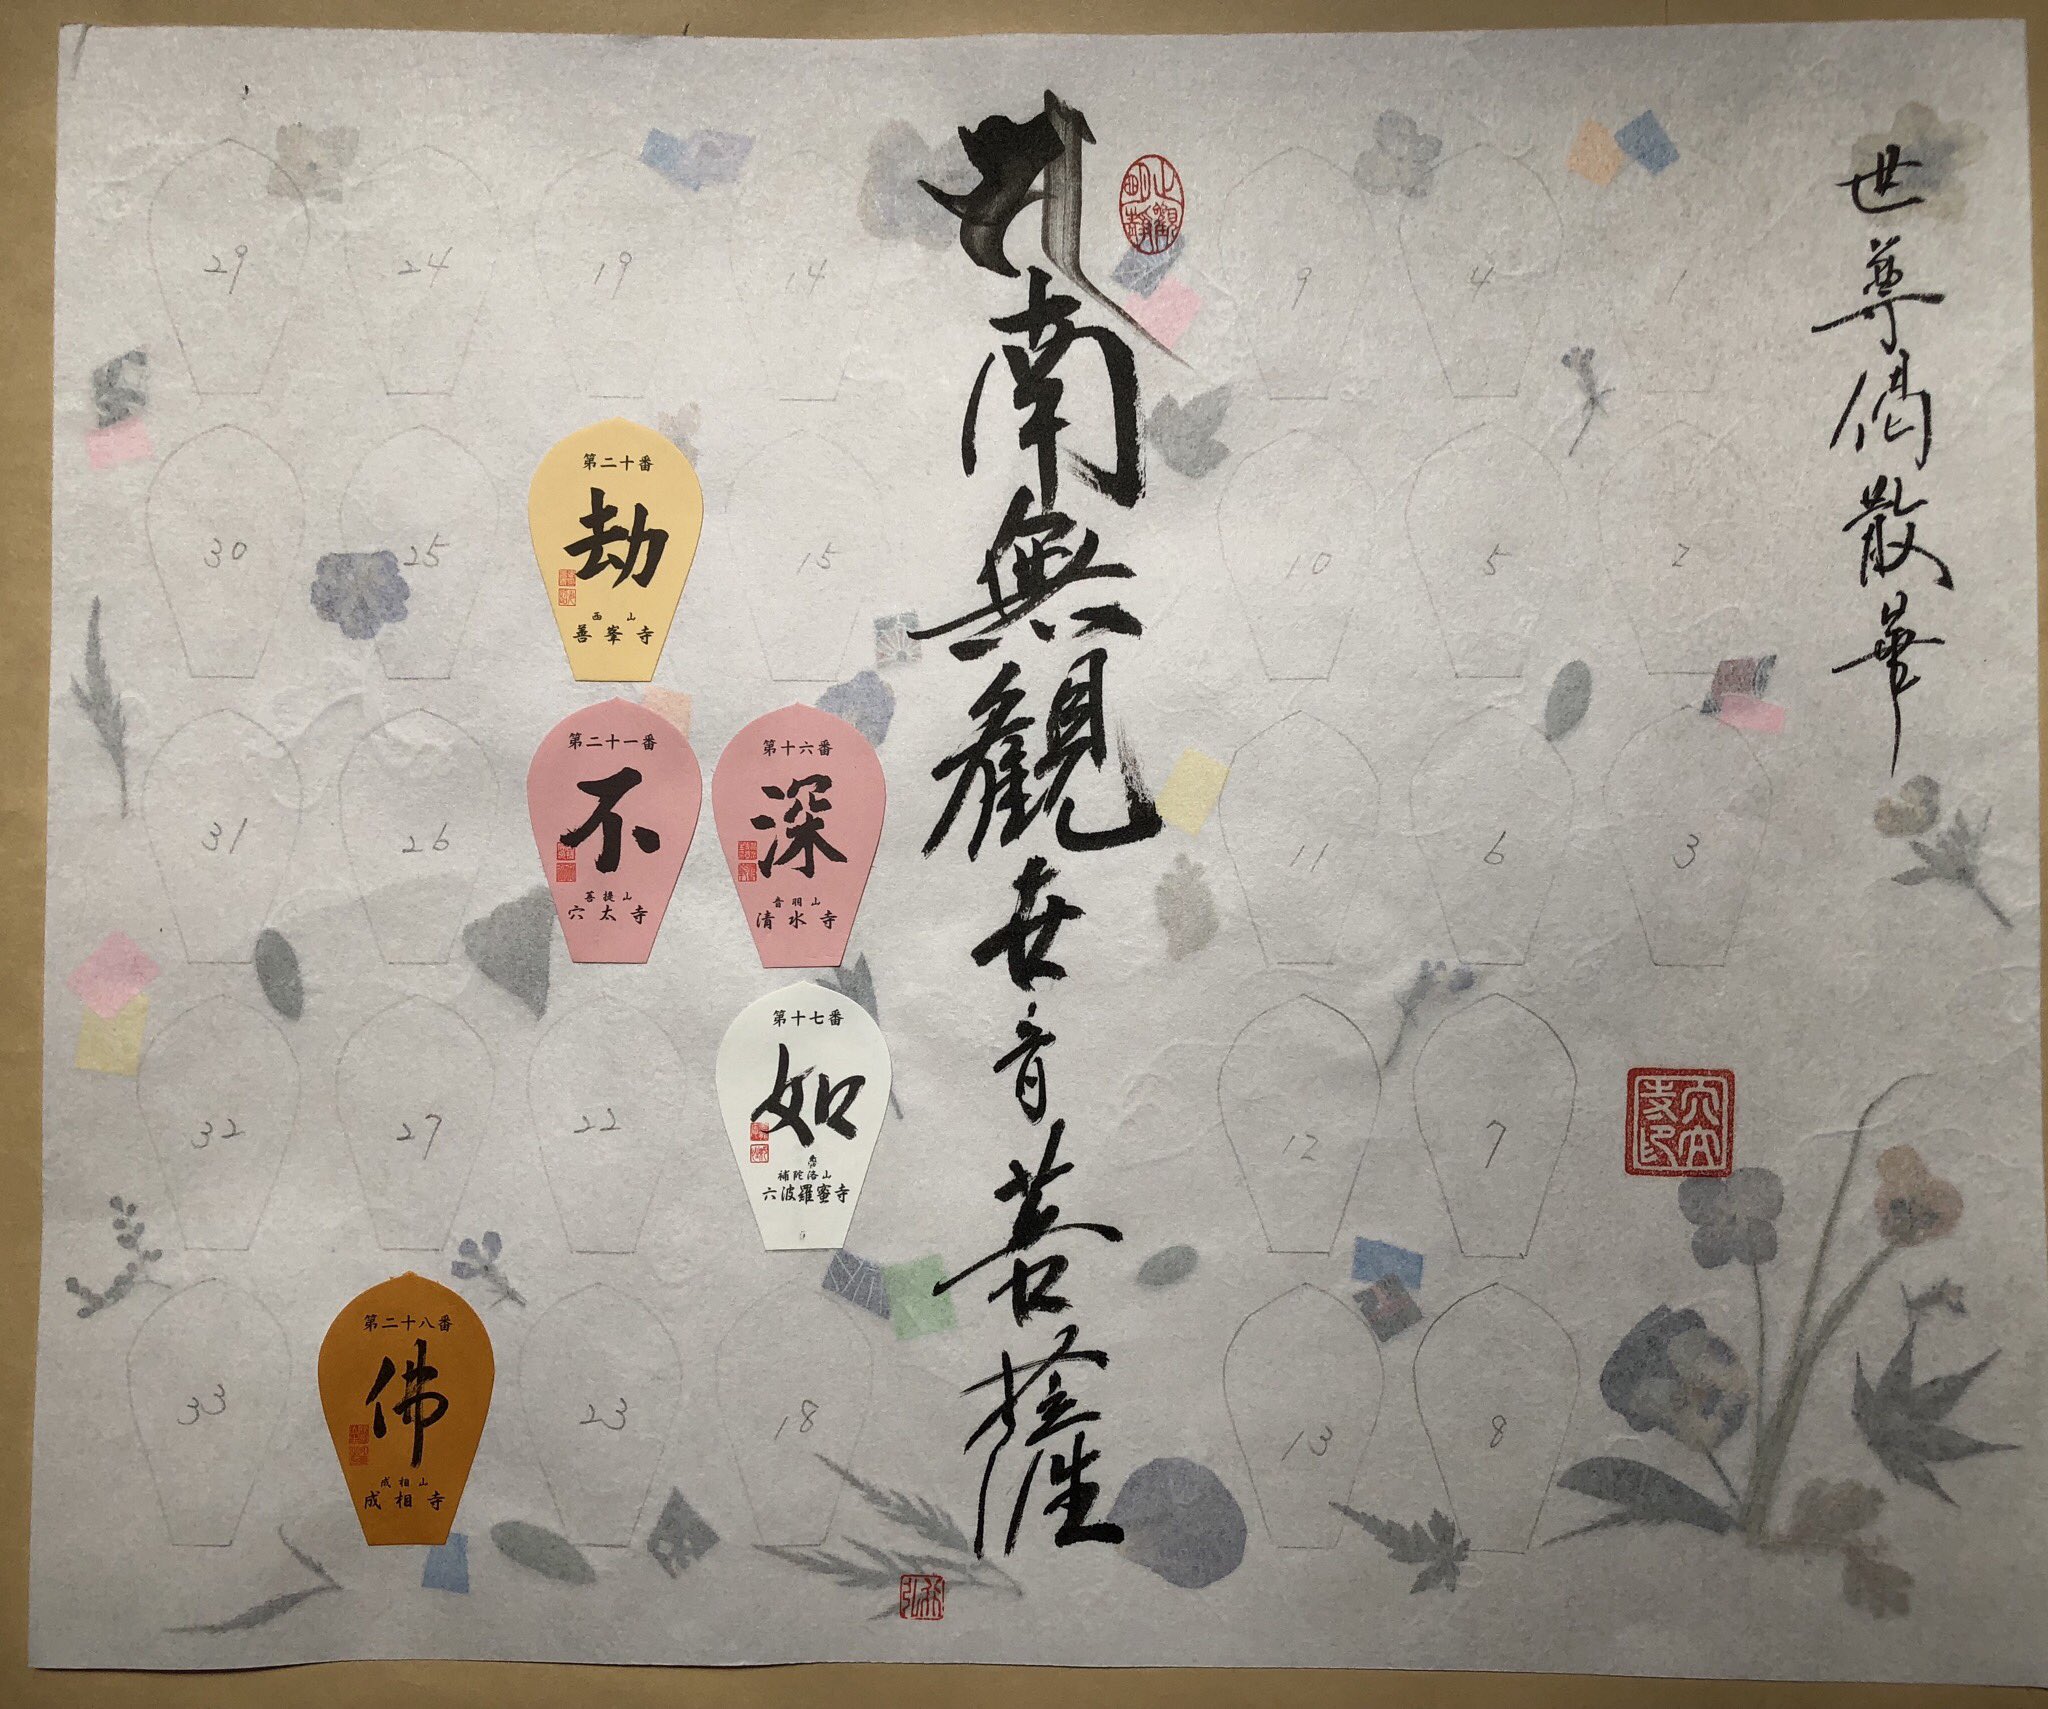 世尊偈散華
1
2
3
4
5
6
7
8
9
10
11
12
13
南無観世音菩薩
14
15
第十六番
深
音羽山
清水寺
第十七番
如
補陀洛山
六波羅蜜寺
18
19
第二十番
劫
西山
善峯寺
第二十一番
不
菩提山
穴太寺
22
23
24
25
26
27
第二十八番
佛
成相山
成相寺
29
30
31
32
33